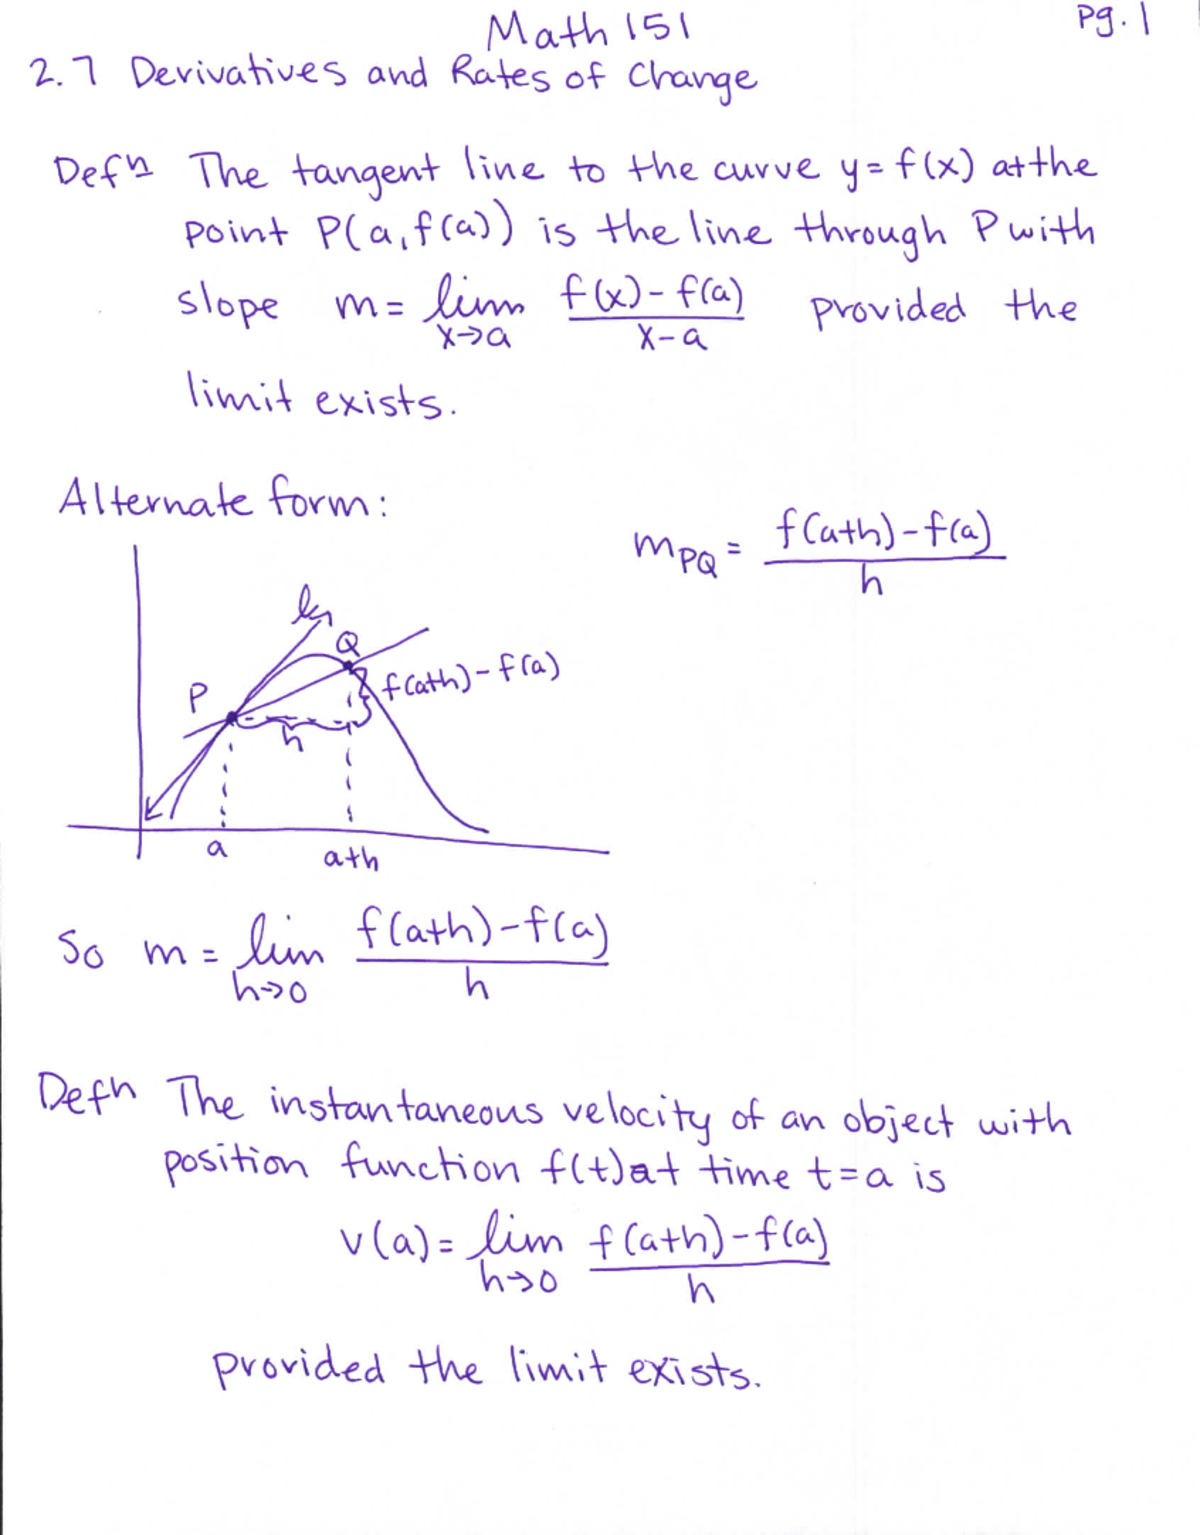 Math 151
pg. 1
2.7 Derivatives and Rates of Change
Defn The tangent line to the curve y = f(x) at the
point P(a, f(a)) is the line through P with
slope m = lim x→a (f(x) - f(a))/(x - a) provided the
limit exists.
Alternate form:
m PQ = (f(a+h) - f(a))/h
Q
P
f(a+h) - f(a)
h
a
a+h
So m = lim h→0 (f(a+h) - f(a))/h
Defn The instantaneous velocity of an object with
position function f(t) at time t = a is
v(a) = lim h→0 (f(a+h) - f(a))/h
provided the limit exists.